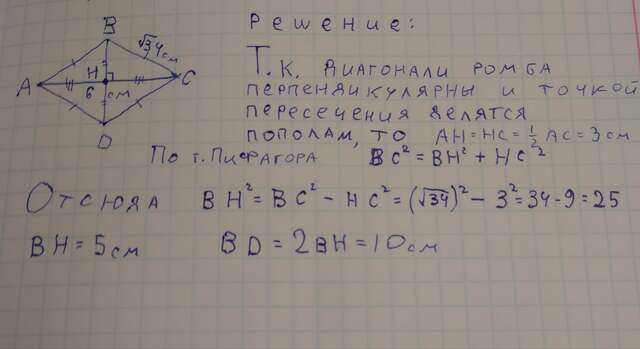 B
√34 см
A
H
C
6 см
D
Решение:
Т.к. диагонали ромба
перпендикулярны и точкой
пересечения делятся
пополам, то AH=HC=½AC=3см
По т. Пифагора BC²=BH²+HC²
Отсюда BH²=BC²-HC²=(√34)²-3²=34-9=25
BH=5см BD=2BH=10см